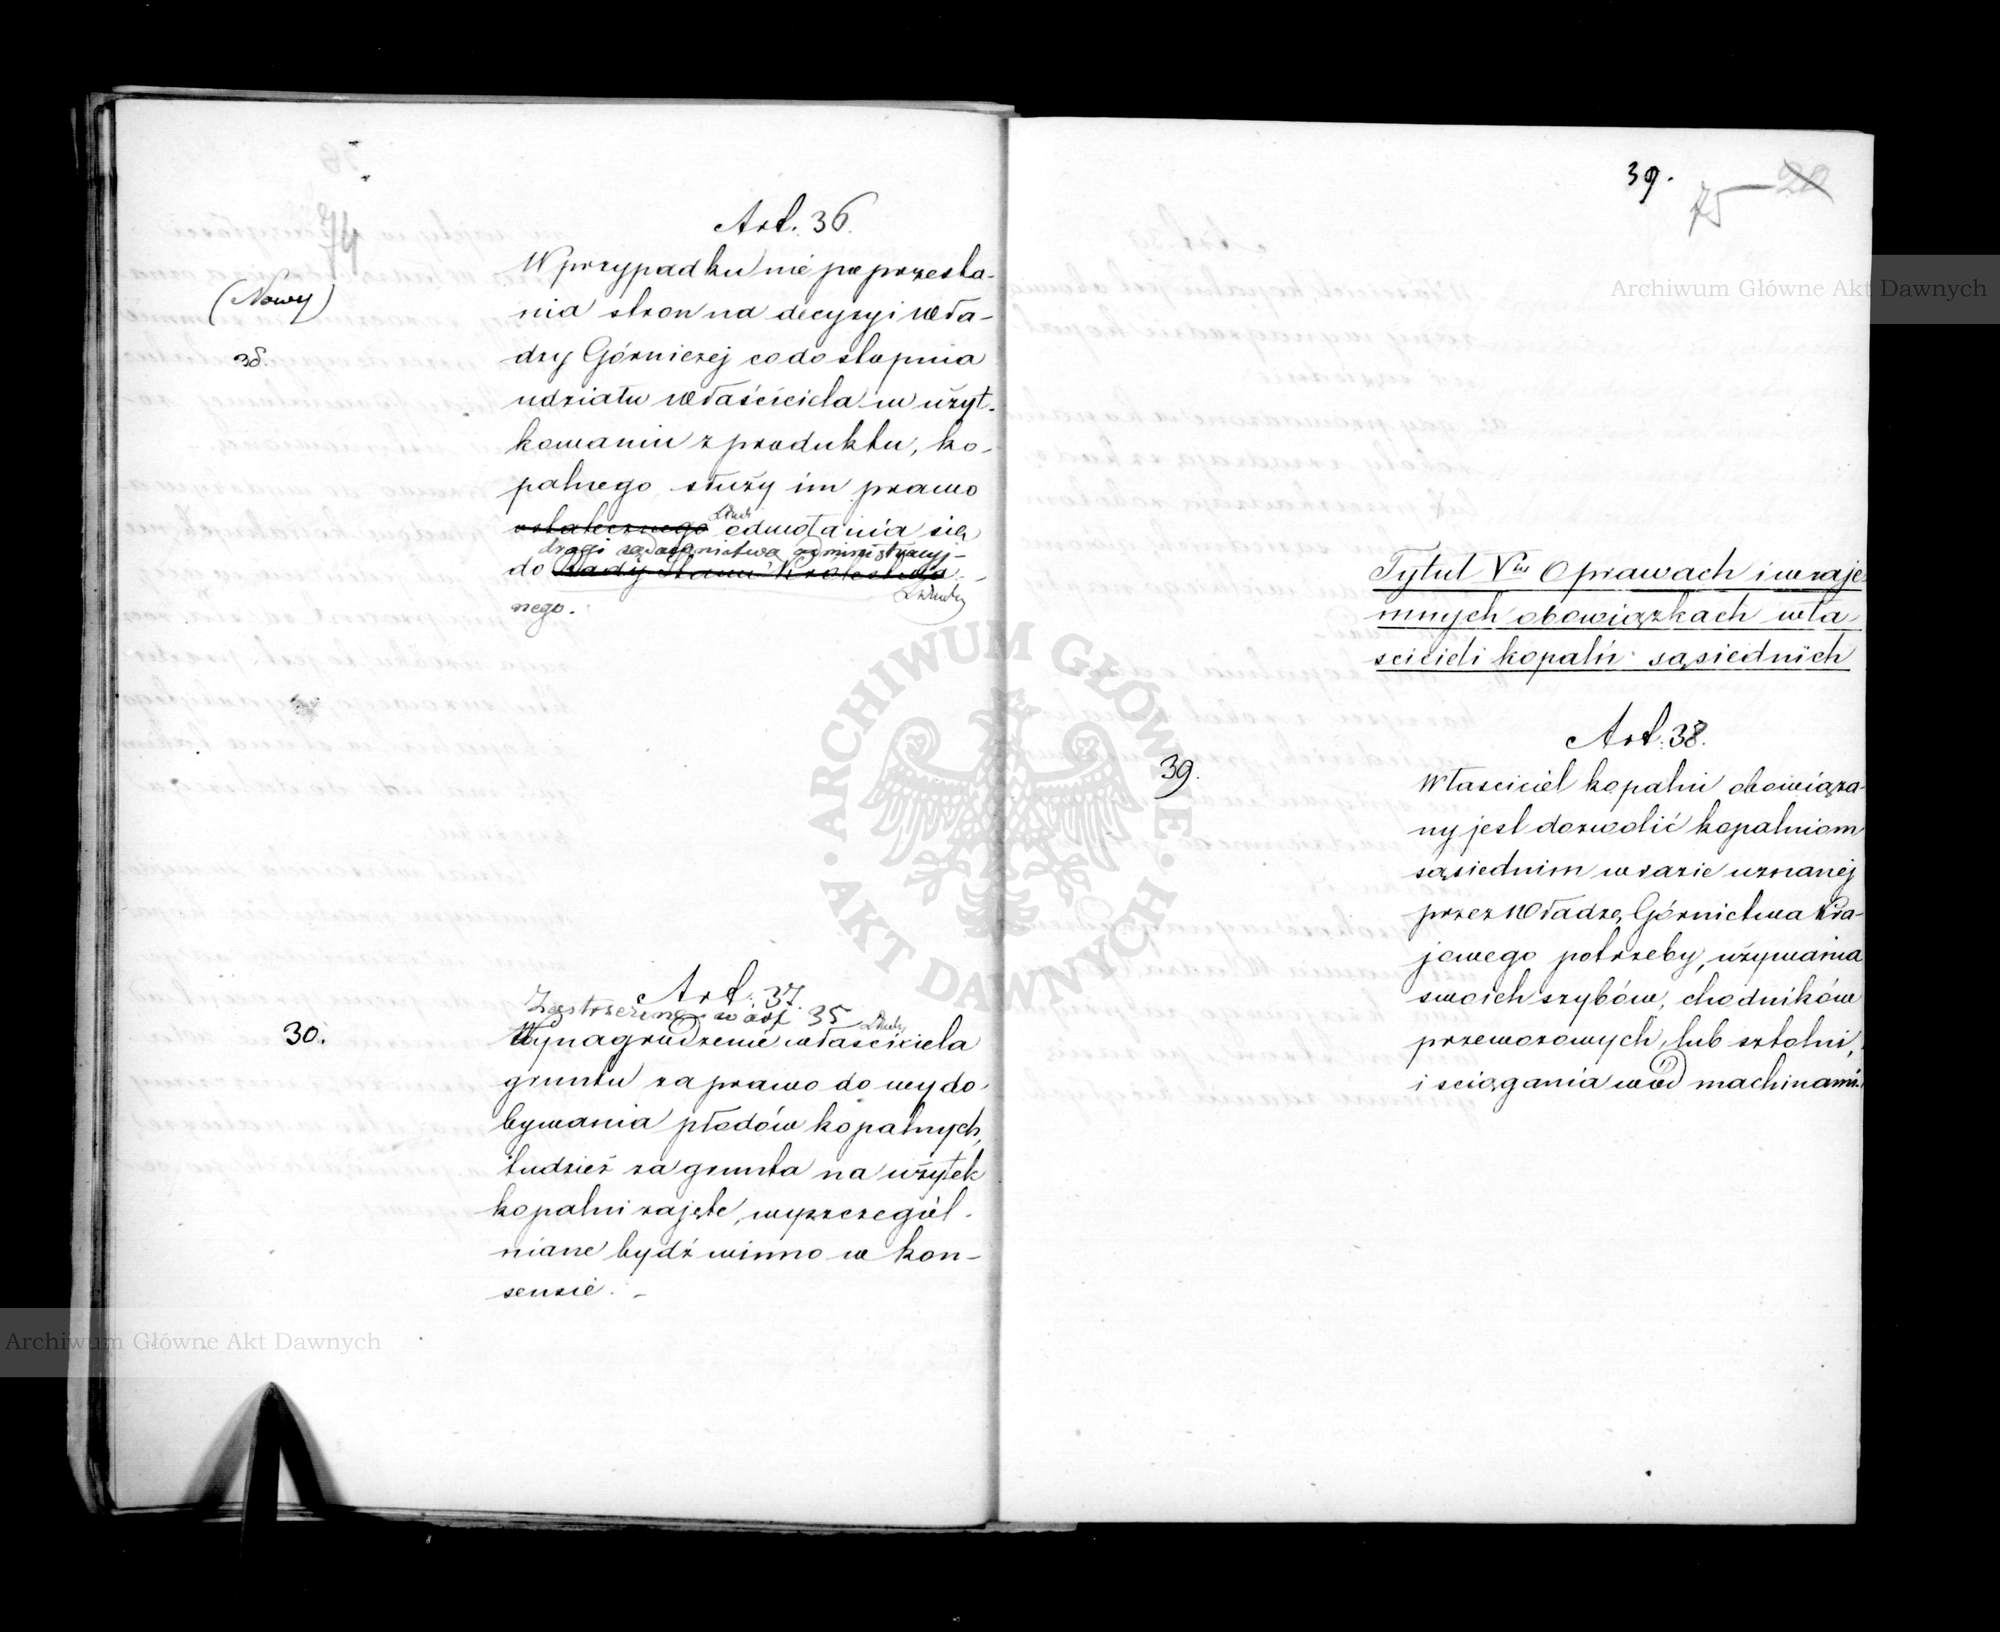 74
Art. 36.
(Nowy)
38.
W przypadku nie poprzesta-
nia stron na decyzyi Wła-
dzy Górniczej co do stopnia
udziału właściciela w użyt-
kowaniu z produktu, ko-
palnego służy im prawo
ostatecznego odwołania się
drogi sądownictwa administracyj-
do Rady Stanu Królestwa
nego.
Art. 37.
Zastrzeżone w art 35
30.
Wynagrodzenie właściciela
gruntu za prawo do wydo-
bywania płodów kopalnych,
tudzież za grunta na użytek
kopalni zajęte, wyszczegól-
niane bydź winno w kon-
sensie. -
39.
75 - 20
Tytuł Vty O prawach i wzaje-
mnych obowiązkach wła-
scicieli kopalń sąsiednich
Art. 38.
39.
Własciciel kopalni obowiąza-
ny jest dozwolić kopalniom
sąsiednim w razie uznanej
przez Władzę Górnictwa Kra-
jowego potrzeby, używania
swoich szybów, chodników
przewozowych, lub sztolni,
i sciągania wód machinami.
Archiwum Główne Akt Dawnych
Archiwum Główne Akt Dawnych
ARCHIWUM GŁÓWNE
AKT DAWNYCH